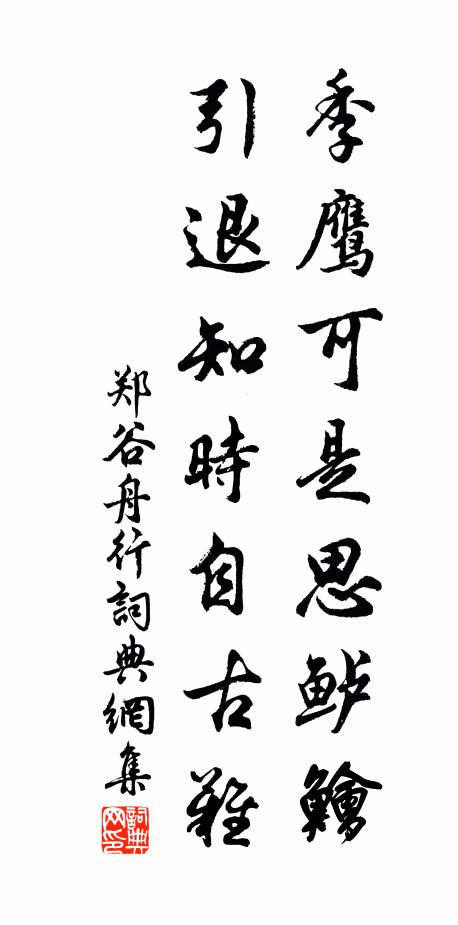 季鹰可是思鲈鱠
引退知時自古難
郑谷舟行詞典網集
詞典網印